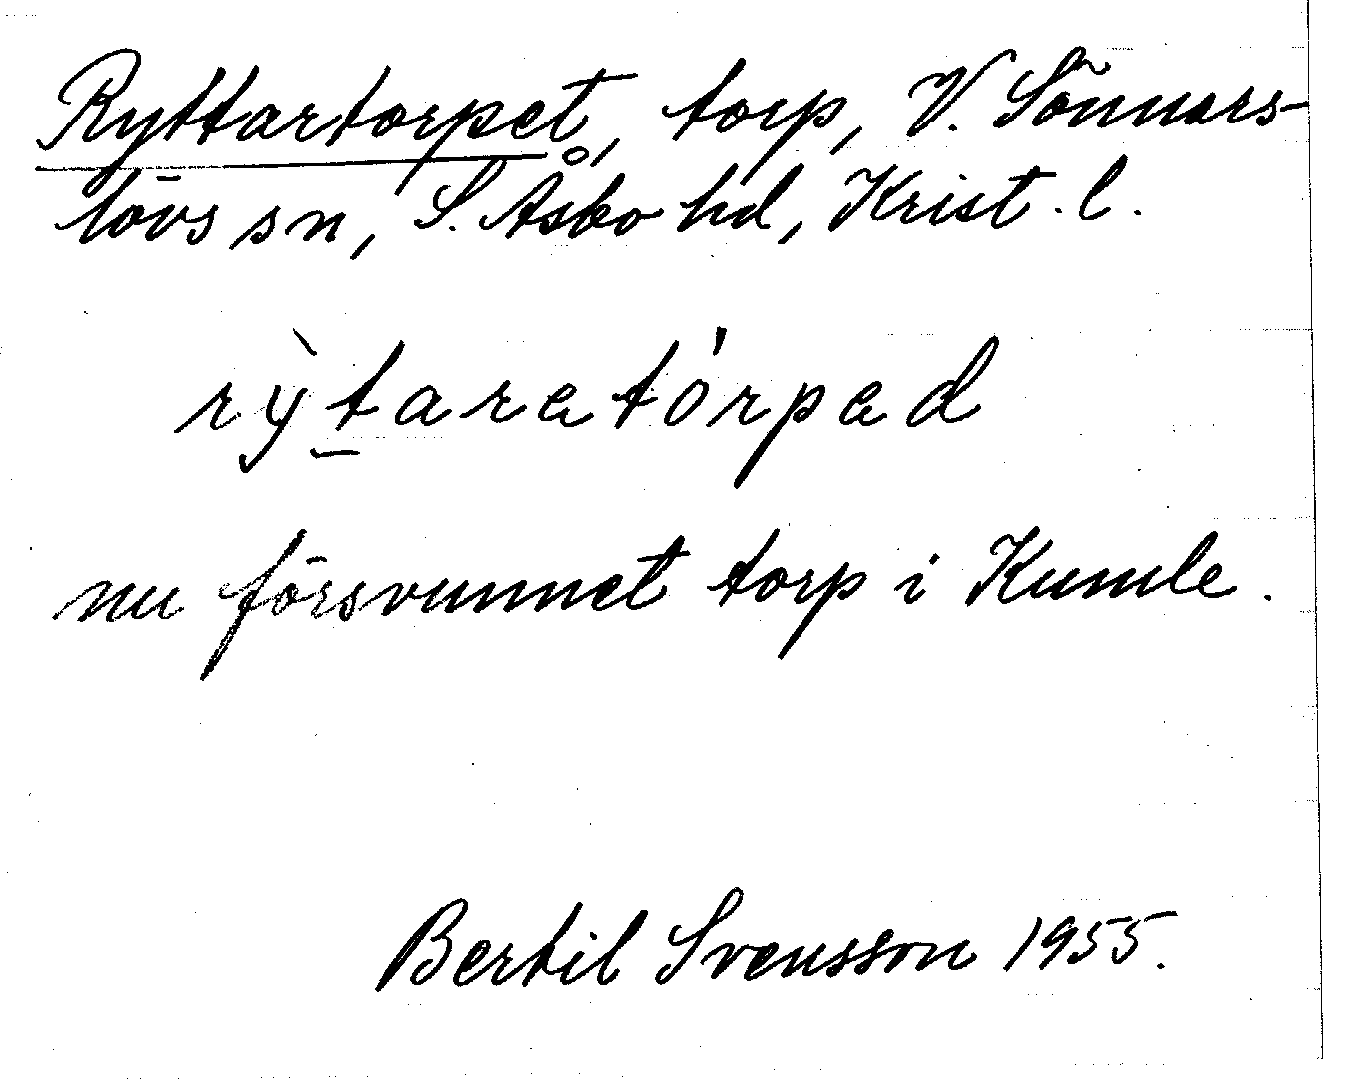 Ryttartorpet, torp, V. Sönnars-
lövs sn, S. Åsbo hd, Krist. l.
rỳt̲aratórpad
nu försvunnet torp i Kumle.
Bertil Svensson 1955.